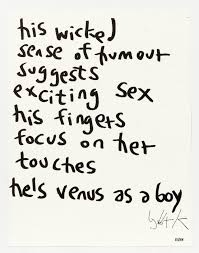 his wicked
sense of humour
suggests
exciting sex
his fingers
focus on her
touches
he's venus as a boy